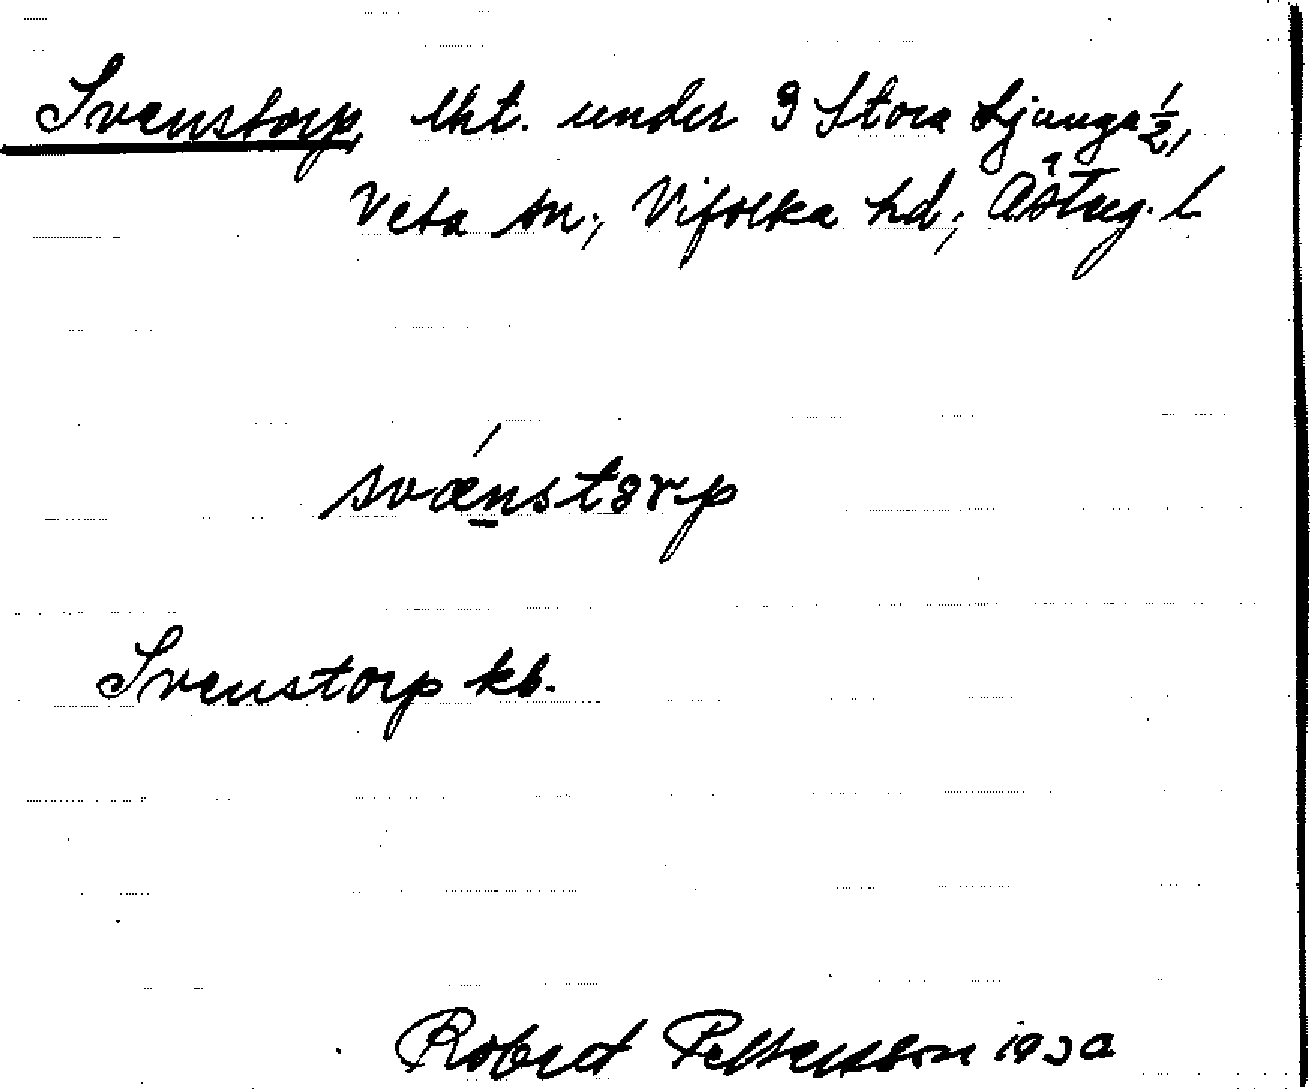 Svenstorp, lht. under 9 Stora Ljunga ½,
Veta sn., Vifolka hd,
svǽnstorp
Svenstorp kb.
Robert Pettersson